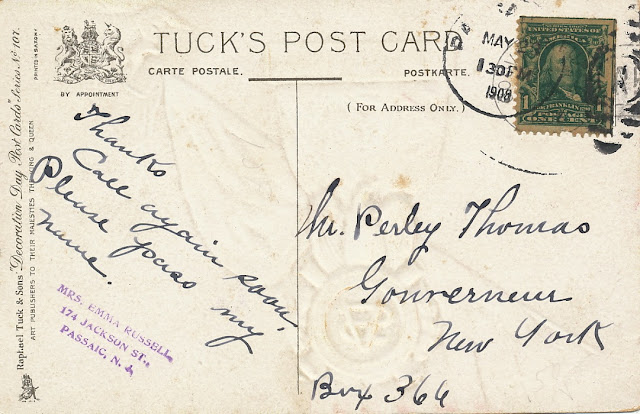 TUCK'S POST CARD
CARTE POSTALE.
POSTKARTE.
BY APPOINTMENT
(FOR ADDRESS ONLY.)
Raphael Tuck & Sons' "Decoration Day" Post Cards Series No 107.
ART PUBLISHERS TO THEIR MAJESTIES THE KING & QUEEN
PRINTED IN SAXONY
MAY
130 PM
1908
1
ONE CENT
1
Thanks
Call again soon.
Please pass my
name.
MRS. EMMA RUSSELL,
174 JACKSON ST.,
PASSAIC, N. J.
Mr. Perley Thomas
Gouverneur
New York
Box 366